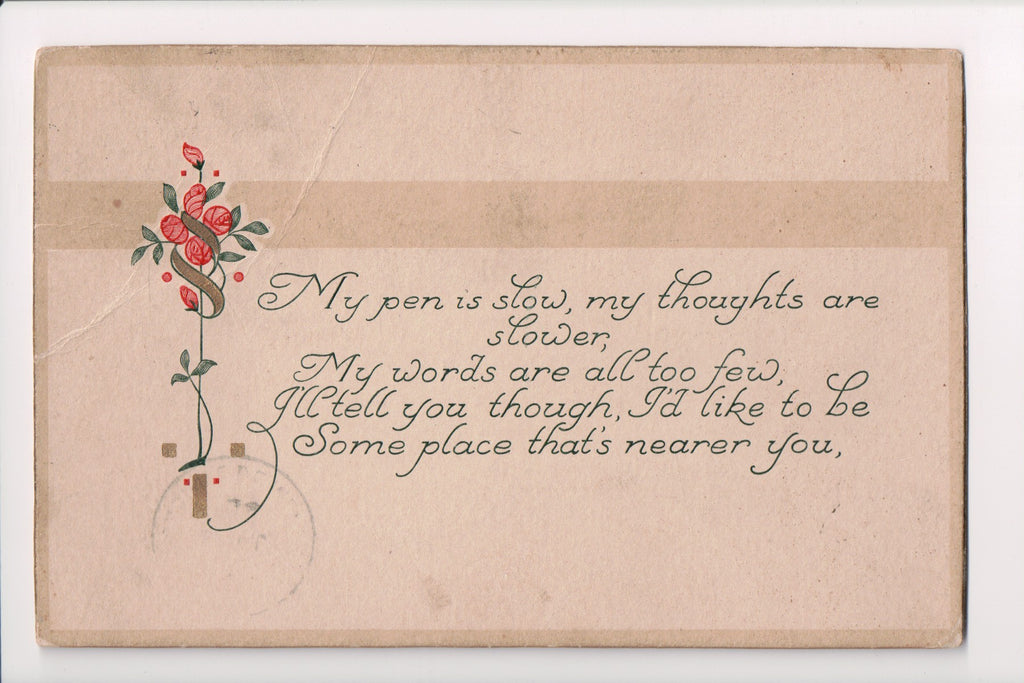 My pen is slow, my thoughts are
slower,
My words are all too few,
I'll tell you though, I'd like to be
Some place that's nearer you,